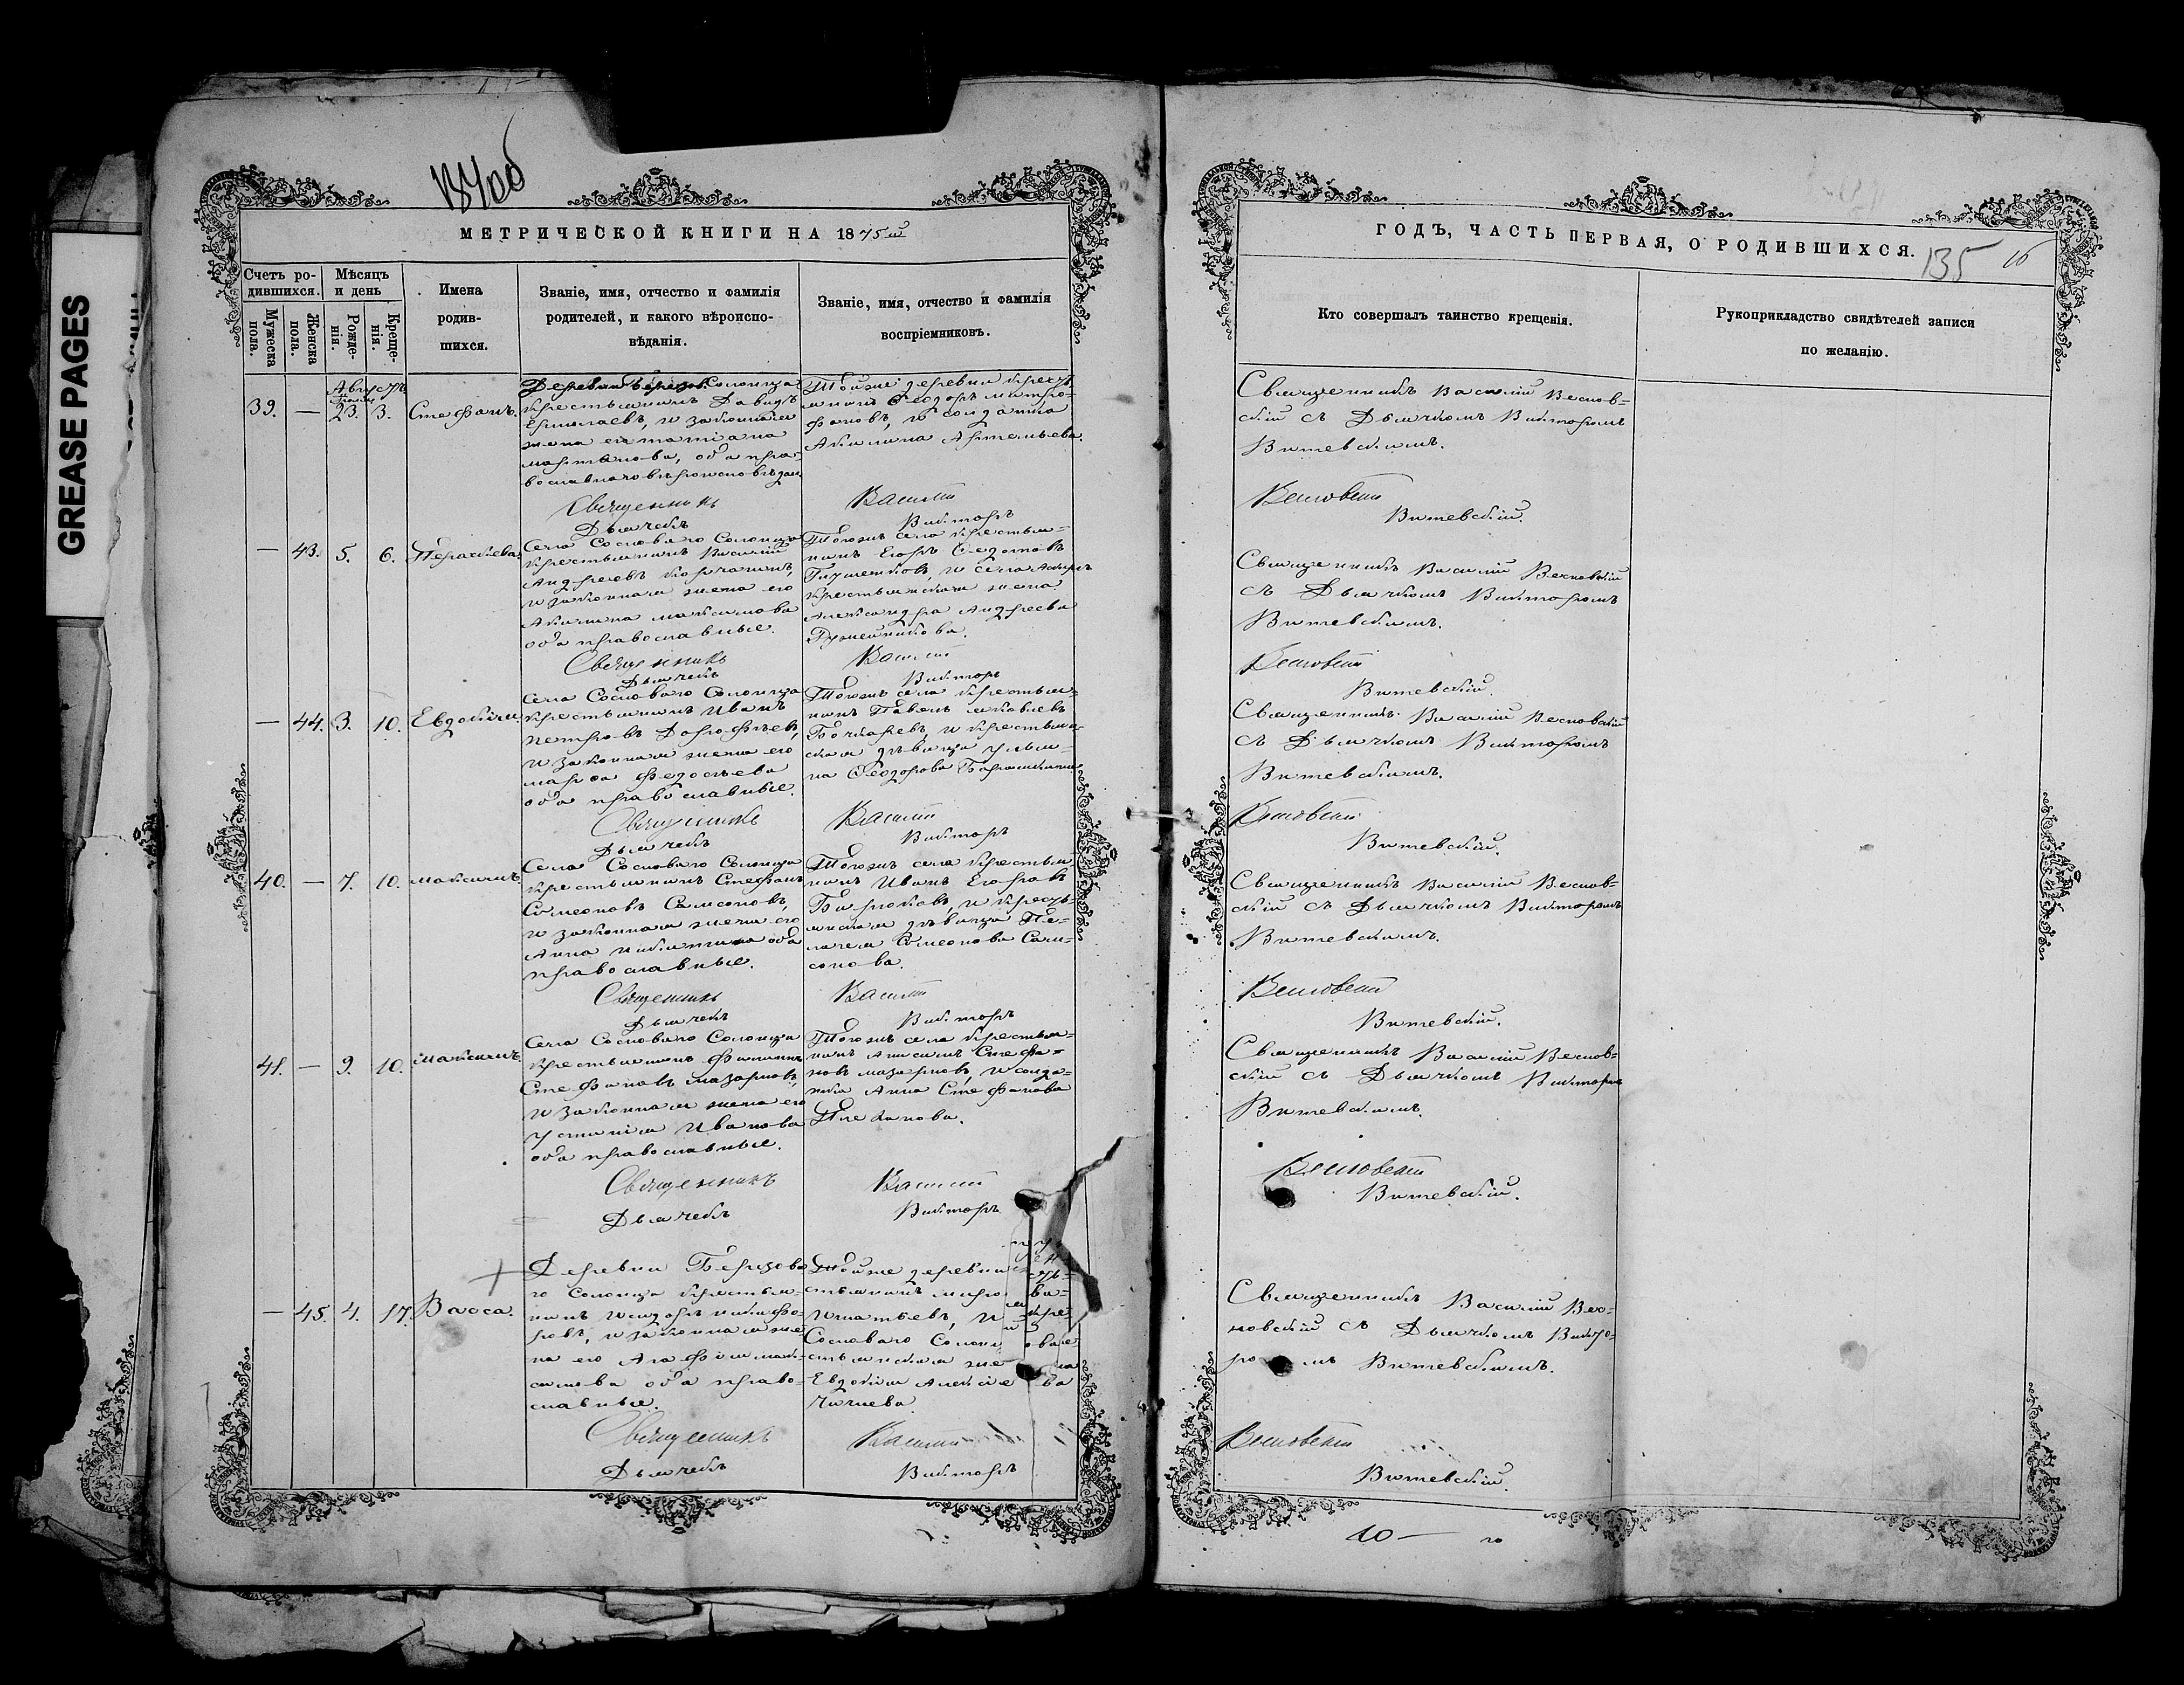 GREASE PAGES
МЕТРИЧЕСКОЙ КНИГИ НА 1875й
Счетъ ро-
дившихся.
Мѣсяцъ
и день
Мужеска
пола.
Женска
пола.
Рожде-
нія.
Креще-
нія.
Имена
родив-
шихся.
Званіе, имя, отчество и фамилія
родителей, и какого вѣроиспо-
вѣданія.
Званіе, имя, отчество и фамилія
воспріемниковъ.
Августъ
39. — 23. 3. Стефанъ.
Солонца
крестьянинъ Давидъ
Ермолаевъ, и законная
жена его Татіана
Мартынова, оба пра-
вославнаго
Тойже деревни крестья
нинъ Феодоръ Митро-
фановъ, и солдатка
Акилина Артемьева.
Священникъ Василій
Дьячекъ Викторъ
— 43. 5. 6. Параскева.
Села Сосноваго Солонца
крестьянинъ Василій
Андреевъ
и законная жена его
Акилина Максимова
оба православные.
Тогожъ села крестья-
нинъ Егоръ Федотовъ
и села
крестьянская жена
Александра Андреева
Священникъ Василій
Дьячекъ Викторъ
— 44. 3. 10. Евдокія
Села Сосноваго Солонца
крестьянинъ Иванъ
Петровъ Дорофѣевъ,
и законная жена его
Марфа Федосѣева
оба православные.
Тогожъ села крестья-
нинъ Павелъ Яковлевъ
Бочкаревъ, и крестьян-
ская дѣвица Улья-
на Феодорова
Священникъ Василій
Дьячекъ Викторъ
40. — 7. 10. Максимъ
Села Сосноваго Солонца
крестьянинъ Стефанъ
Симеоновъ Самсоновъ,
и законная жена его
Анна Никитина оба
православные.
Тогожъ села крестья
нинъ Иванъ Егоровъ
Бирюковъ, и кресть-
янская дѣвица Пе-
лагея Симеонова Сам-
сонова.
Священникъ Василій
Дьячекъ Викторъ
41. — 9. 10. Максимъ
Села Сосноваго Солонца
крестьянинъ Филиппъ
Стефановъ Мазановъ,
и законная жена его
Устинія Иванова
оба православные.
Тогожъ села крестья-
нинъ Анисимъ Стефа-
новъ и солда-
тка Анна Стефанова
Плеханова.
Священникъ Василій
Дьячекъ Викторъ
— 45. 4. 17. Васса.
Деревни Березова
го Солонца крестья-
нинъ Исидоръ Никифо-
ровъ, и законная же
на его Агафія Мак-
симова оба право-
славные.
Тойже деревни
стьянинъ
Игнатьевъ, и
Сосноваго Солон
стьянская же
Евдокія Алексѣе ва
Священникъ Василій
Дьячекъ Викторъ
ГОДЪ, ЧАСТЬ ПЕРВАЯ, О РОДИВШИХСЯ.
135
Кто совершалъ таинство крещенія.
Рукоприкладство свидѣтелей записи
по желанію.
Священникъ Василій Веснов-
скій съ Дьячкомъ Викторомъ
Витевскимъ.
Весновскій
Витевскій.
Священникъ Василій Весновскій
съ Дьячкомъ Викторомъ
Витевскимъ.
Весновскій
Витевскій.
Священникъ Василій Весновскій
съ Дьячкомъ Викторомъ
Витевскимъ.
Весновскій
Витевскій.
Священникъ Василій Веснов-
скій съ Дьячкомъ Викторомъ
Витевскимъ.
Весновскій
Витевскій.
Священникъ Василій Веснов-
скій съ Дьячкомъ Викторомъ
Витевскимъ.
Весновскій
Витевскій.
Священникъ Василій Вес-
новскій съ Дьячкомъ Викто-
ро мъ Витевскимъ.
Весновскій
Витевскій.
10 —